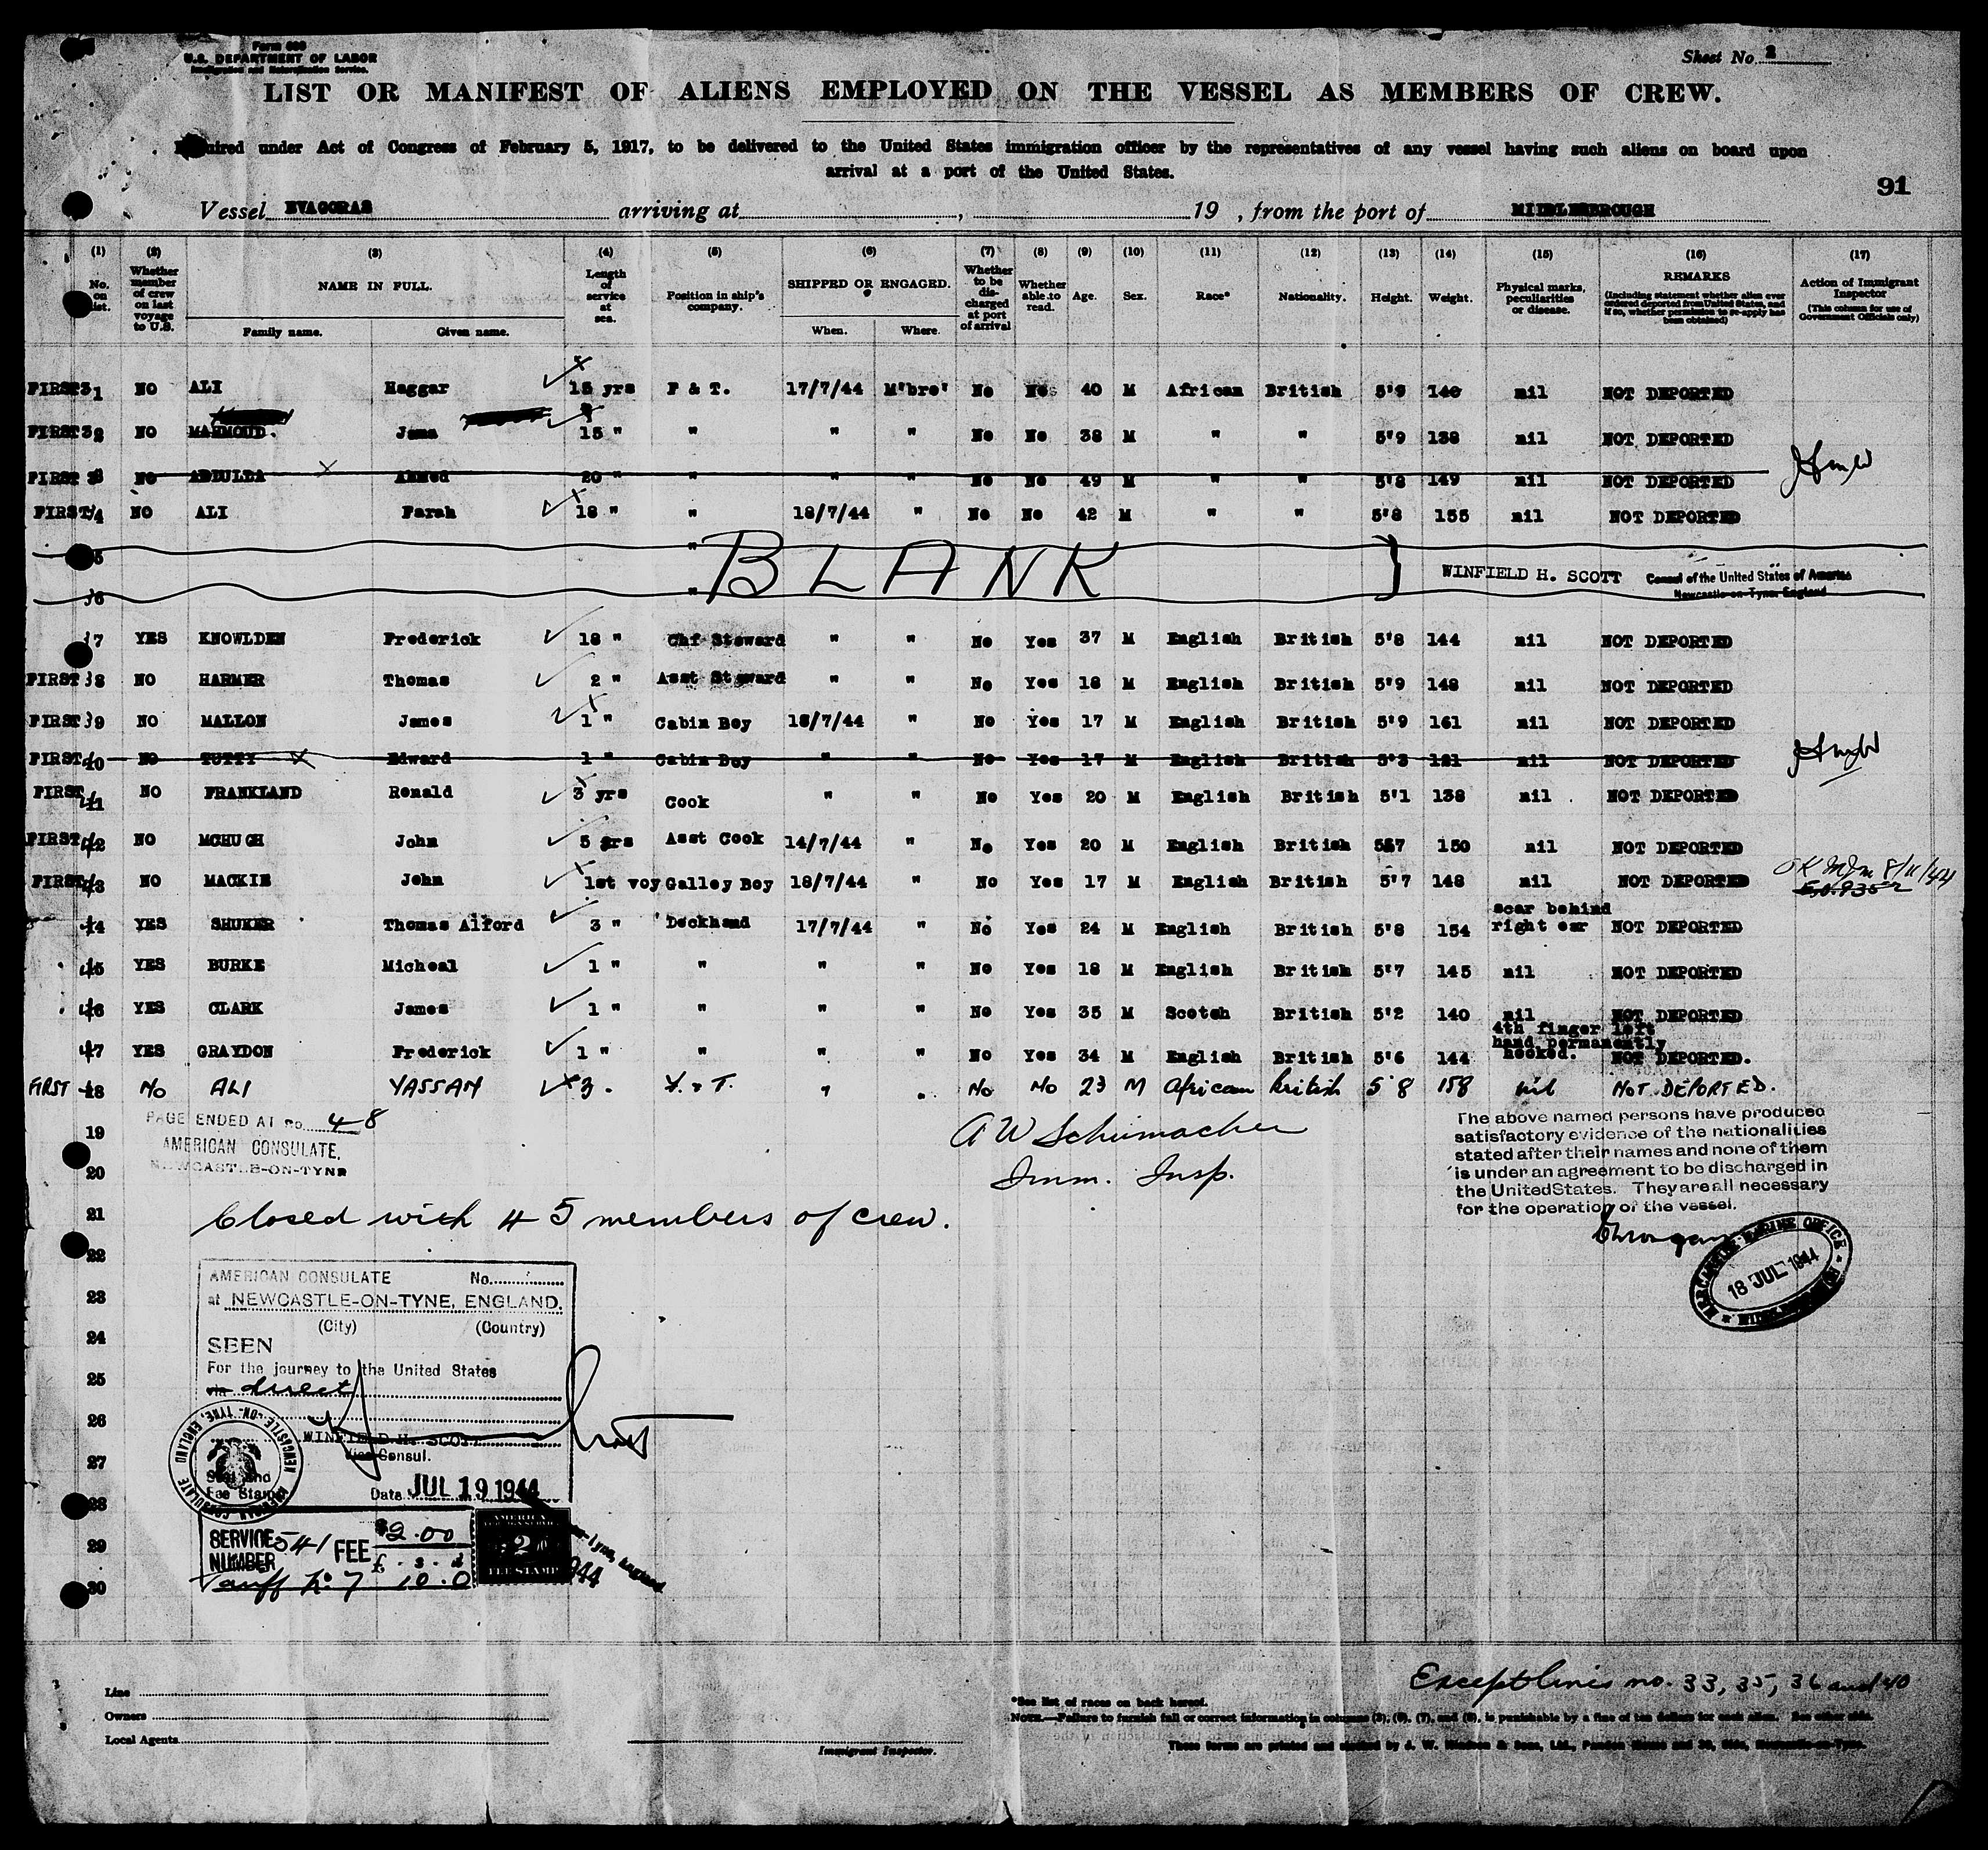 Form 680
U.S. DEPARTMENT OF LABOR
Immigration and Naturalization Service.
Sheet No. 2
LIST OR MANIFEST OF ALIENS EMPLOYED ON THE VESSEL AS MEMBERS OF CREW.
Required under Act of Congress of February 5, 1917, to be delivered to the United States immigration officer by the representatives of any vessel having such aliens on board upon
arrival at a port of the United States.
91
Vessel EVAGORAS arriving at , 19 , from the port of MIDDLESBROUGH
(1) (2) (3) (4) (5) (6) (7) (8) (9) (10) (11) (12) (13) (14) (15) (16) (17)
No. on list. Whether member of crew on last voyage to U.S. NAME IN FULL. Family name. Given name. Length of service at sea. Position in ship's company. SHIPPED OR ENGAGED. When. Where. Whether to be discharged at port of arrival Whether able to read. Age. Sex. Race* Nationality. Height. Weight. Physical marks, peculiarities or disease. REMARKS (Including statement whether alien ever ordered deported from United States, and if so, whether permission to re-apply has been obtained) Action of Immigrant Inspector (This column for use of Government Officials only)
FIRST 31 NO ALI Haggar 15 yrs F & T. 17/7/44 M'bro' No No 40 M African British 5'9 140 nil NOT DEPORTED
FIRST 32 NO MAHMOUD. Jama 15 " " " " No No 38 M " " 5'9 138 nil NOT DEPORTED
FIRST 33 NO ABDULLA Ahmed 20 " " " " No No 49 M " " 5'8 149 nil NOT DEPORTED
FIRST 34 NO ALI Farah 18 " " 18/7/44 " No No 42 M " " 5'8 155 nil NOT DEPORTED
35 "
BLANK WINFIELD H. SCOTT Consul of the United States of America
36 " Newcastle-on-Tyne, England
37 YES KNOWLDEN Frederick 18 " Chf Steward " " No Yes 37 M English British 5'8 144 nil NOT DEPORTED
FIRST 38 NO HARMER Thomas 2 " Asst Steward " " No Yes 18 M English British 5'9 148 nil NOT DEPORTED
FIRST 39 NO MALLON James 1 " Cabin Boy 18/7/44 " No Yes 17 M English British 5'9 161 nil NOT DEPORTED
FIRST 40 NO TUTTY Edward 1 " Cabin Boy " " No Yes 17 M English British 5'3 121 nil NOT DEPORTED
FIRST 41 NO FRANKLAND Ronald 3 yrs Cook " " No Yes 20 M English British 5'1 138 nil NOT DEPORTED
FIRST 42 NO MCHUGH John 5 yrs Asst Cook 14/7/44 " No Yes 20 M English British 5'7 150 nil NOT DEPORTED
FIRST 43 NO MACKIE John 1st voy Galley Boy 18/7/44 " No Yes 17 M English British 5'7 148 nil NOT DEPORTED OK 8/11/44
44 YES SHUKER Thomas Alford 3 " Deckhand 17/7/44 " No Yes 24 M English British 5'8 154 scar behind right ear NOT DEPORTED
45 YES BURKE Micheal 1 " " " " No Yes 18 M English British 5'7 145 nil NOT DEPORTED
46 YES CLARK James 1 " " " " No Yes 35 M Scotch British 5'2 140 nil NOT DEPORTED
47 YES GRAYDON Frederick 1 " " " " No Yes 34 M English British 5'6 144 4th finger left hand permanently hooked. NOT DEPORTED.
FIRST 48 No ALI YASSAN 3 . F. & T. " " No No 23 M African British 5'8 158 nil NOT DEPORTED.
PAGE ENDED AT No. 48
AMERICAN CONSULATE,
NEWCASTLE-ON-TYNE
A W Schumacher
Imm. Insp.
The above named persons have produced
satisfactory evidence of the nationalities
stated after their names and none of them
is under an agreement to be discharged in
the United States. They are all necessary
for the operation of the vessel.
19
20
21
Closed with 45 members of crew.
MERCANTILE MARINE OFFICE
18 JUL 1944
22
23
24
25
26
27
28
29
30
AMERICAN CONSULATE No.
at NEWCASTLE-ON-TYNE, ENGLAND.
(City) (Country)
SEEN
For the journey to the United States
via direct
WINFIELD H. SCOTT
Vice Consul.
Seal and
Fee Stamp
Date JUL 19 1944
AMERICAN CONSULATE NEWCASTLE-ON-TYNE, ENGLAND
SERVICE NUMBER 541 FEE $2.00
£ . s . d
Tariff No 7 10.0
AMERICAN FOREIGN SERVICE
2
FEE STAMP
Except lines no. 33, 35, 36 and 40
Line
Owners
Local Agents
Immigrant Inspector.
*See list of races on back hereof.
NOTE.—Failure to furnish full or correct information in columns (3), (6), (7), and (8), is punishable by a fine of ten dollars for each alien. See other side.